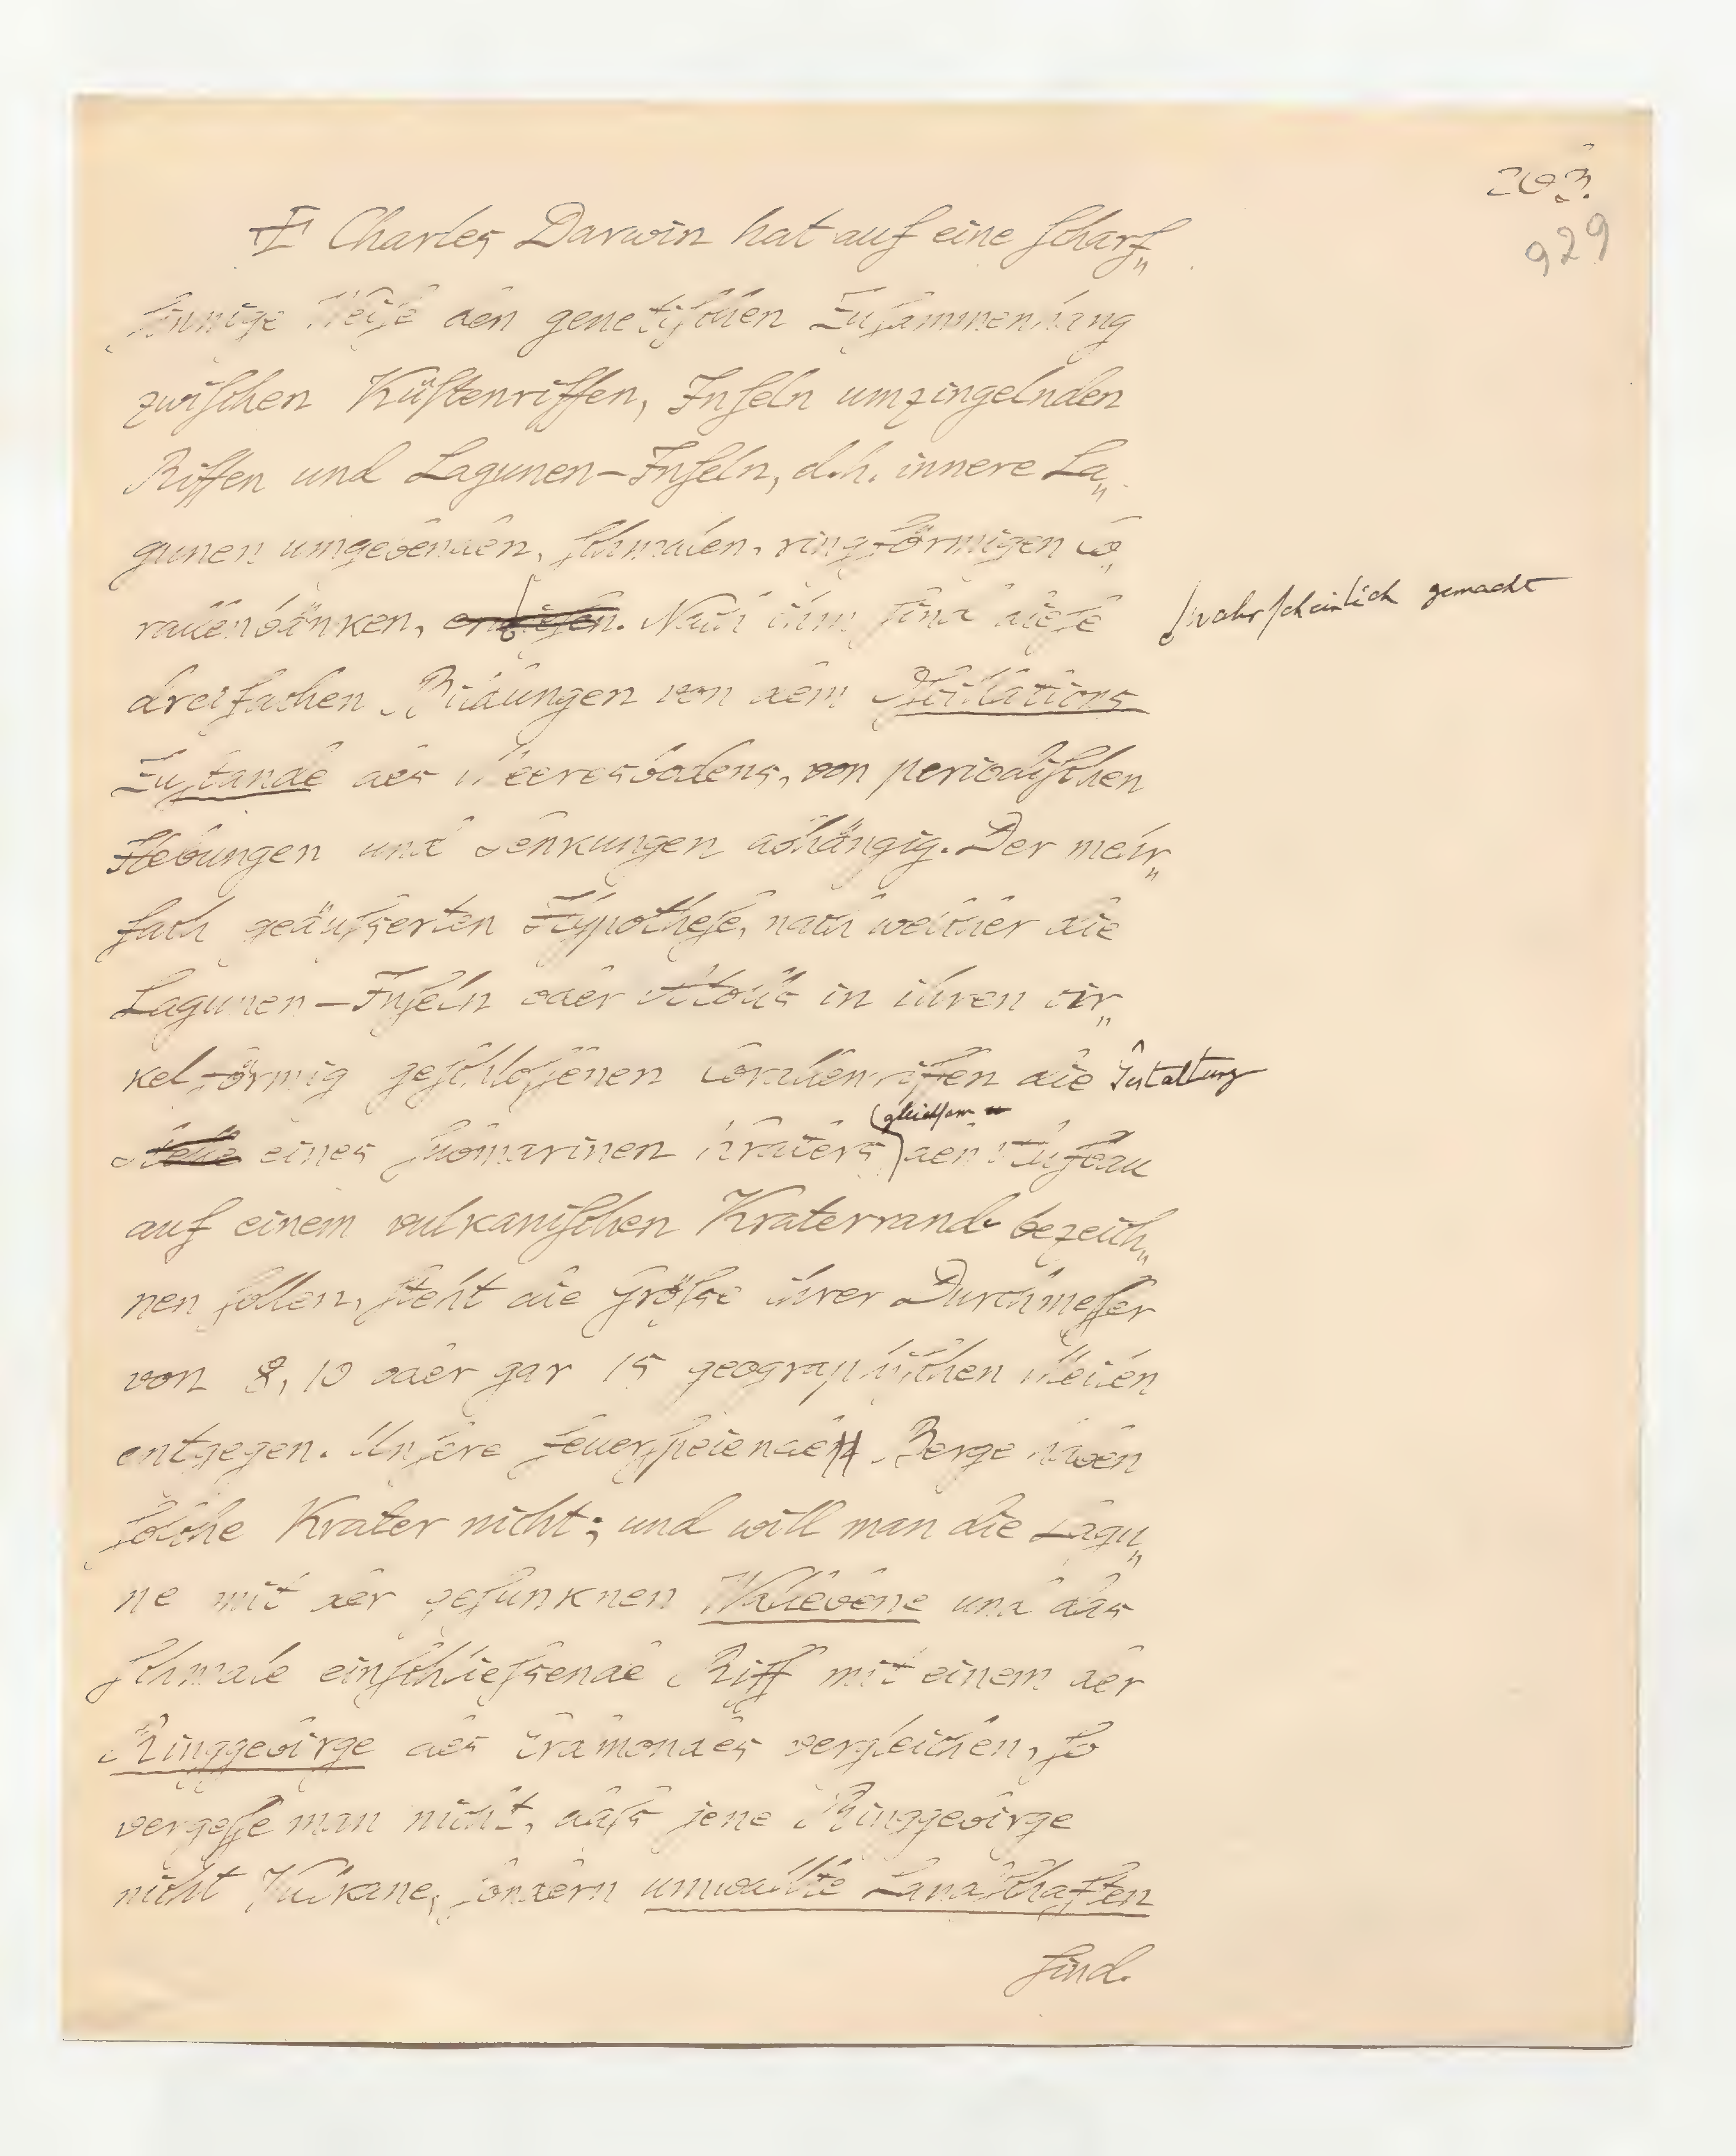 203.
929
Charles Darwin hat auf eine ſcharf„
ſinnige Weiſe den genetiſchen Zuſammenhang
zwiſchen Küſtenriffen, Inſeln umzingelnden
Riffen und Lagunen-Inſeln, d.h. innere La„
gunen umgebenden, ſchmalen, ringförmigen Co„
rallenbänken, erwieſen. Nach ihm ſind dieſe
wahrſcheinlich gemacht
dreifachen Bildungen von dem Oſcillations
Zuſtande des Meeresbodens, von periodiſchen
Hebungen und Senkungen abhängig. Der mehr„
fach geäuſserten Hypotheſe, nach welcher die
Lagunen-Inſeln oder Atolls in ihren cir„
kelförmig geſchloſſenen Corallenriffen die Geſtaltung
eines ſubmarinen Kraters, gleichſam den Aufbau
auf einem vulkaniſchen Kraterrand bezeich„
nen ſollen, ſteht die Gröſse ihrer Durchmeſſer
von 8, 10 oder gar 15 geographiſchen Meilen
entgegen. Unſere feuerſpeienden Berge haben
ſolche Krater nicht; und will man die Lagu„
ne mit der geſunknen Wallebene und das
ſchmale einſchlieſsende Riff mit einem der
Ringgebirge des Erdmondes vergleichen, ſo
vergeſſe man nicht, daſs jene Ringgebirge
nicht Vulkane, ſondern umwallte Landſchaften
ſind.